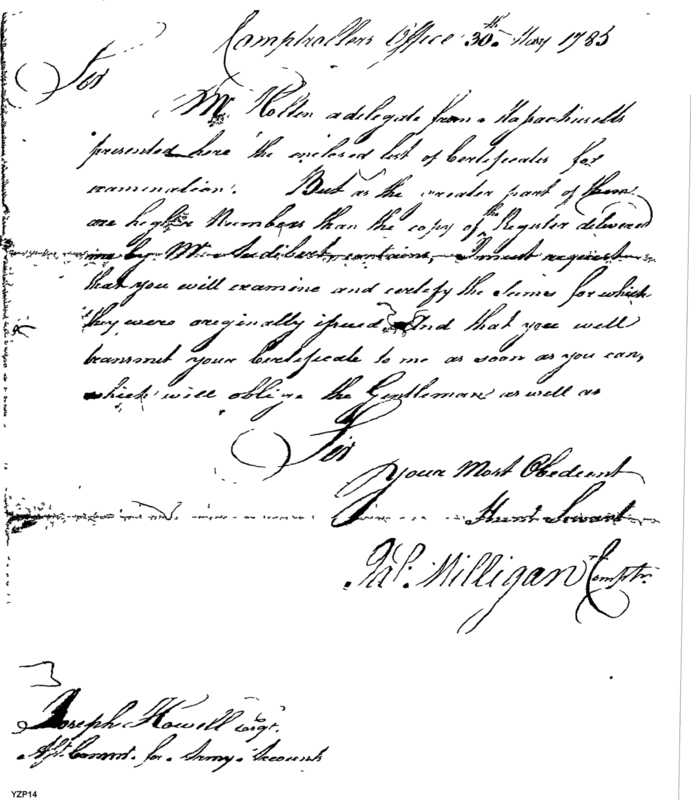 Comptrollers Office 30th. May 1785
Sir
Mr. Holten a delegate from Massachusetts
presented here the enclosed list of Certificates for
examination. But as the greater part of them
are higher Numbers than the copy of the Register delivered
me by Mr. Audibert contains, I must request
that you will examine and certify the Sums for which
they were originally issued And that you will
transmit your Certificate to me as soon as you can,
which will oblige the Gentleman as well as
Sir
Your Most Obedient
Hum. Servant
Jas. Milligan Comptr.
Joseph Howell Esqr.
Asst. Commr. for Army Accounts
YZP14